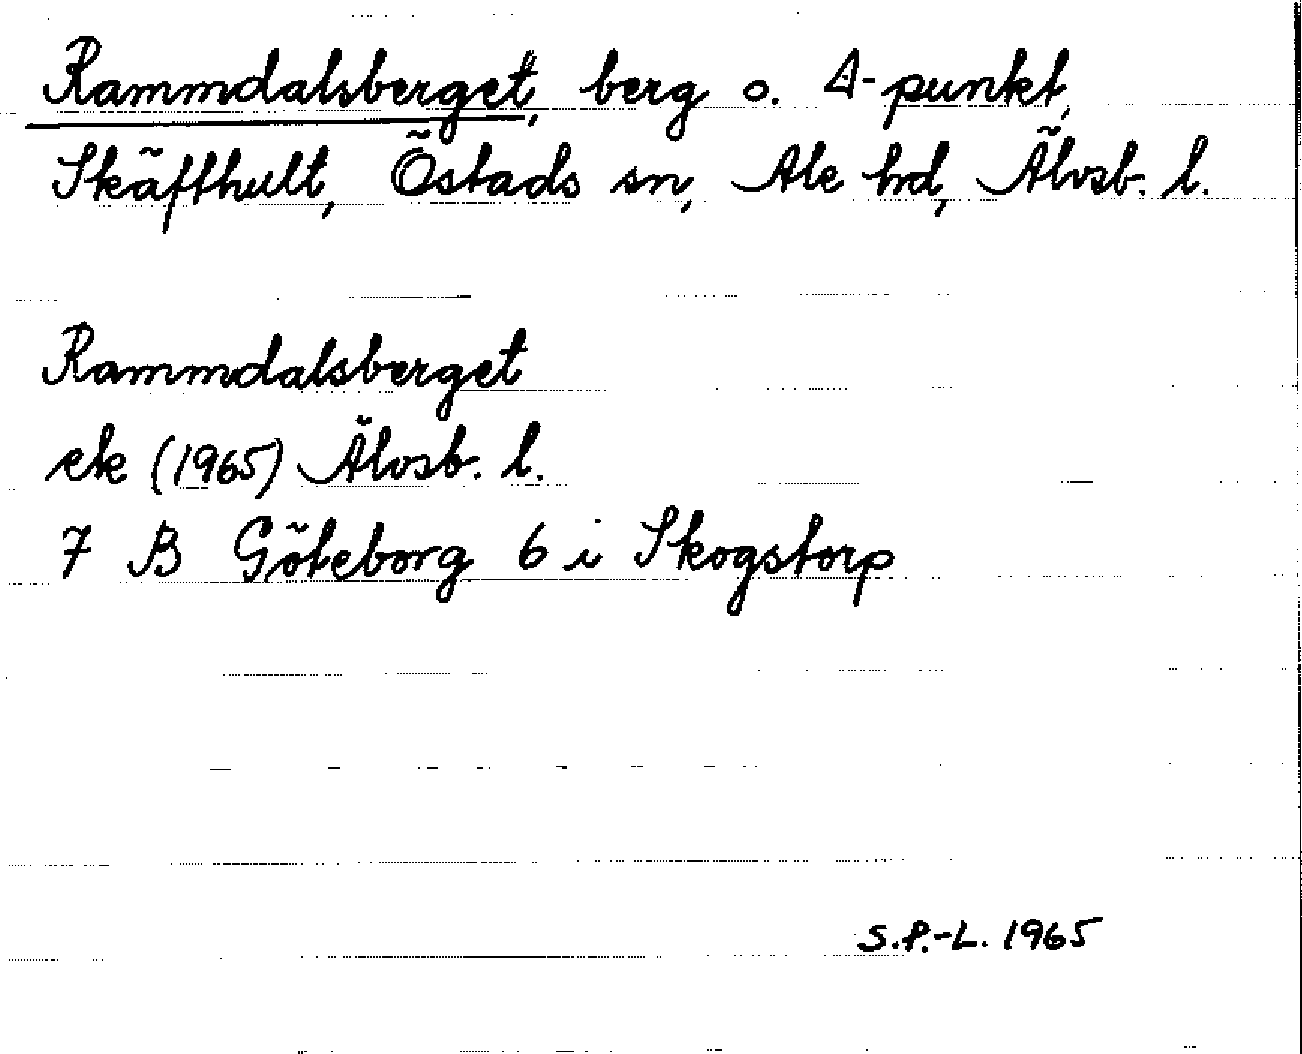 Rammdalsberget, berg o. Δ-punkt,
Skäfthult, Östads sn, Ale hd, Älvsb. l.
Rammdalsberget
ek (1965) Älvsb. l.
7 B Göteborg 6 i Skogstorp
S.P.-L. 1965